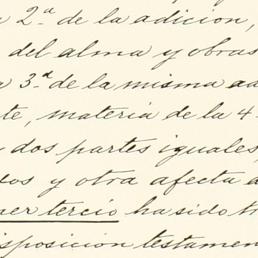 a 2.ª de la adicion,
del alma y obras
a 3.ª de la misma ad
te, materia de la 4.
y dos partes iguales,
dos y otra afecta a
mer tercio ha sido tr
isposicion testamen